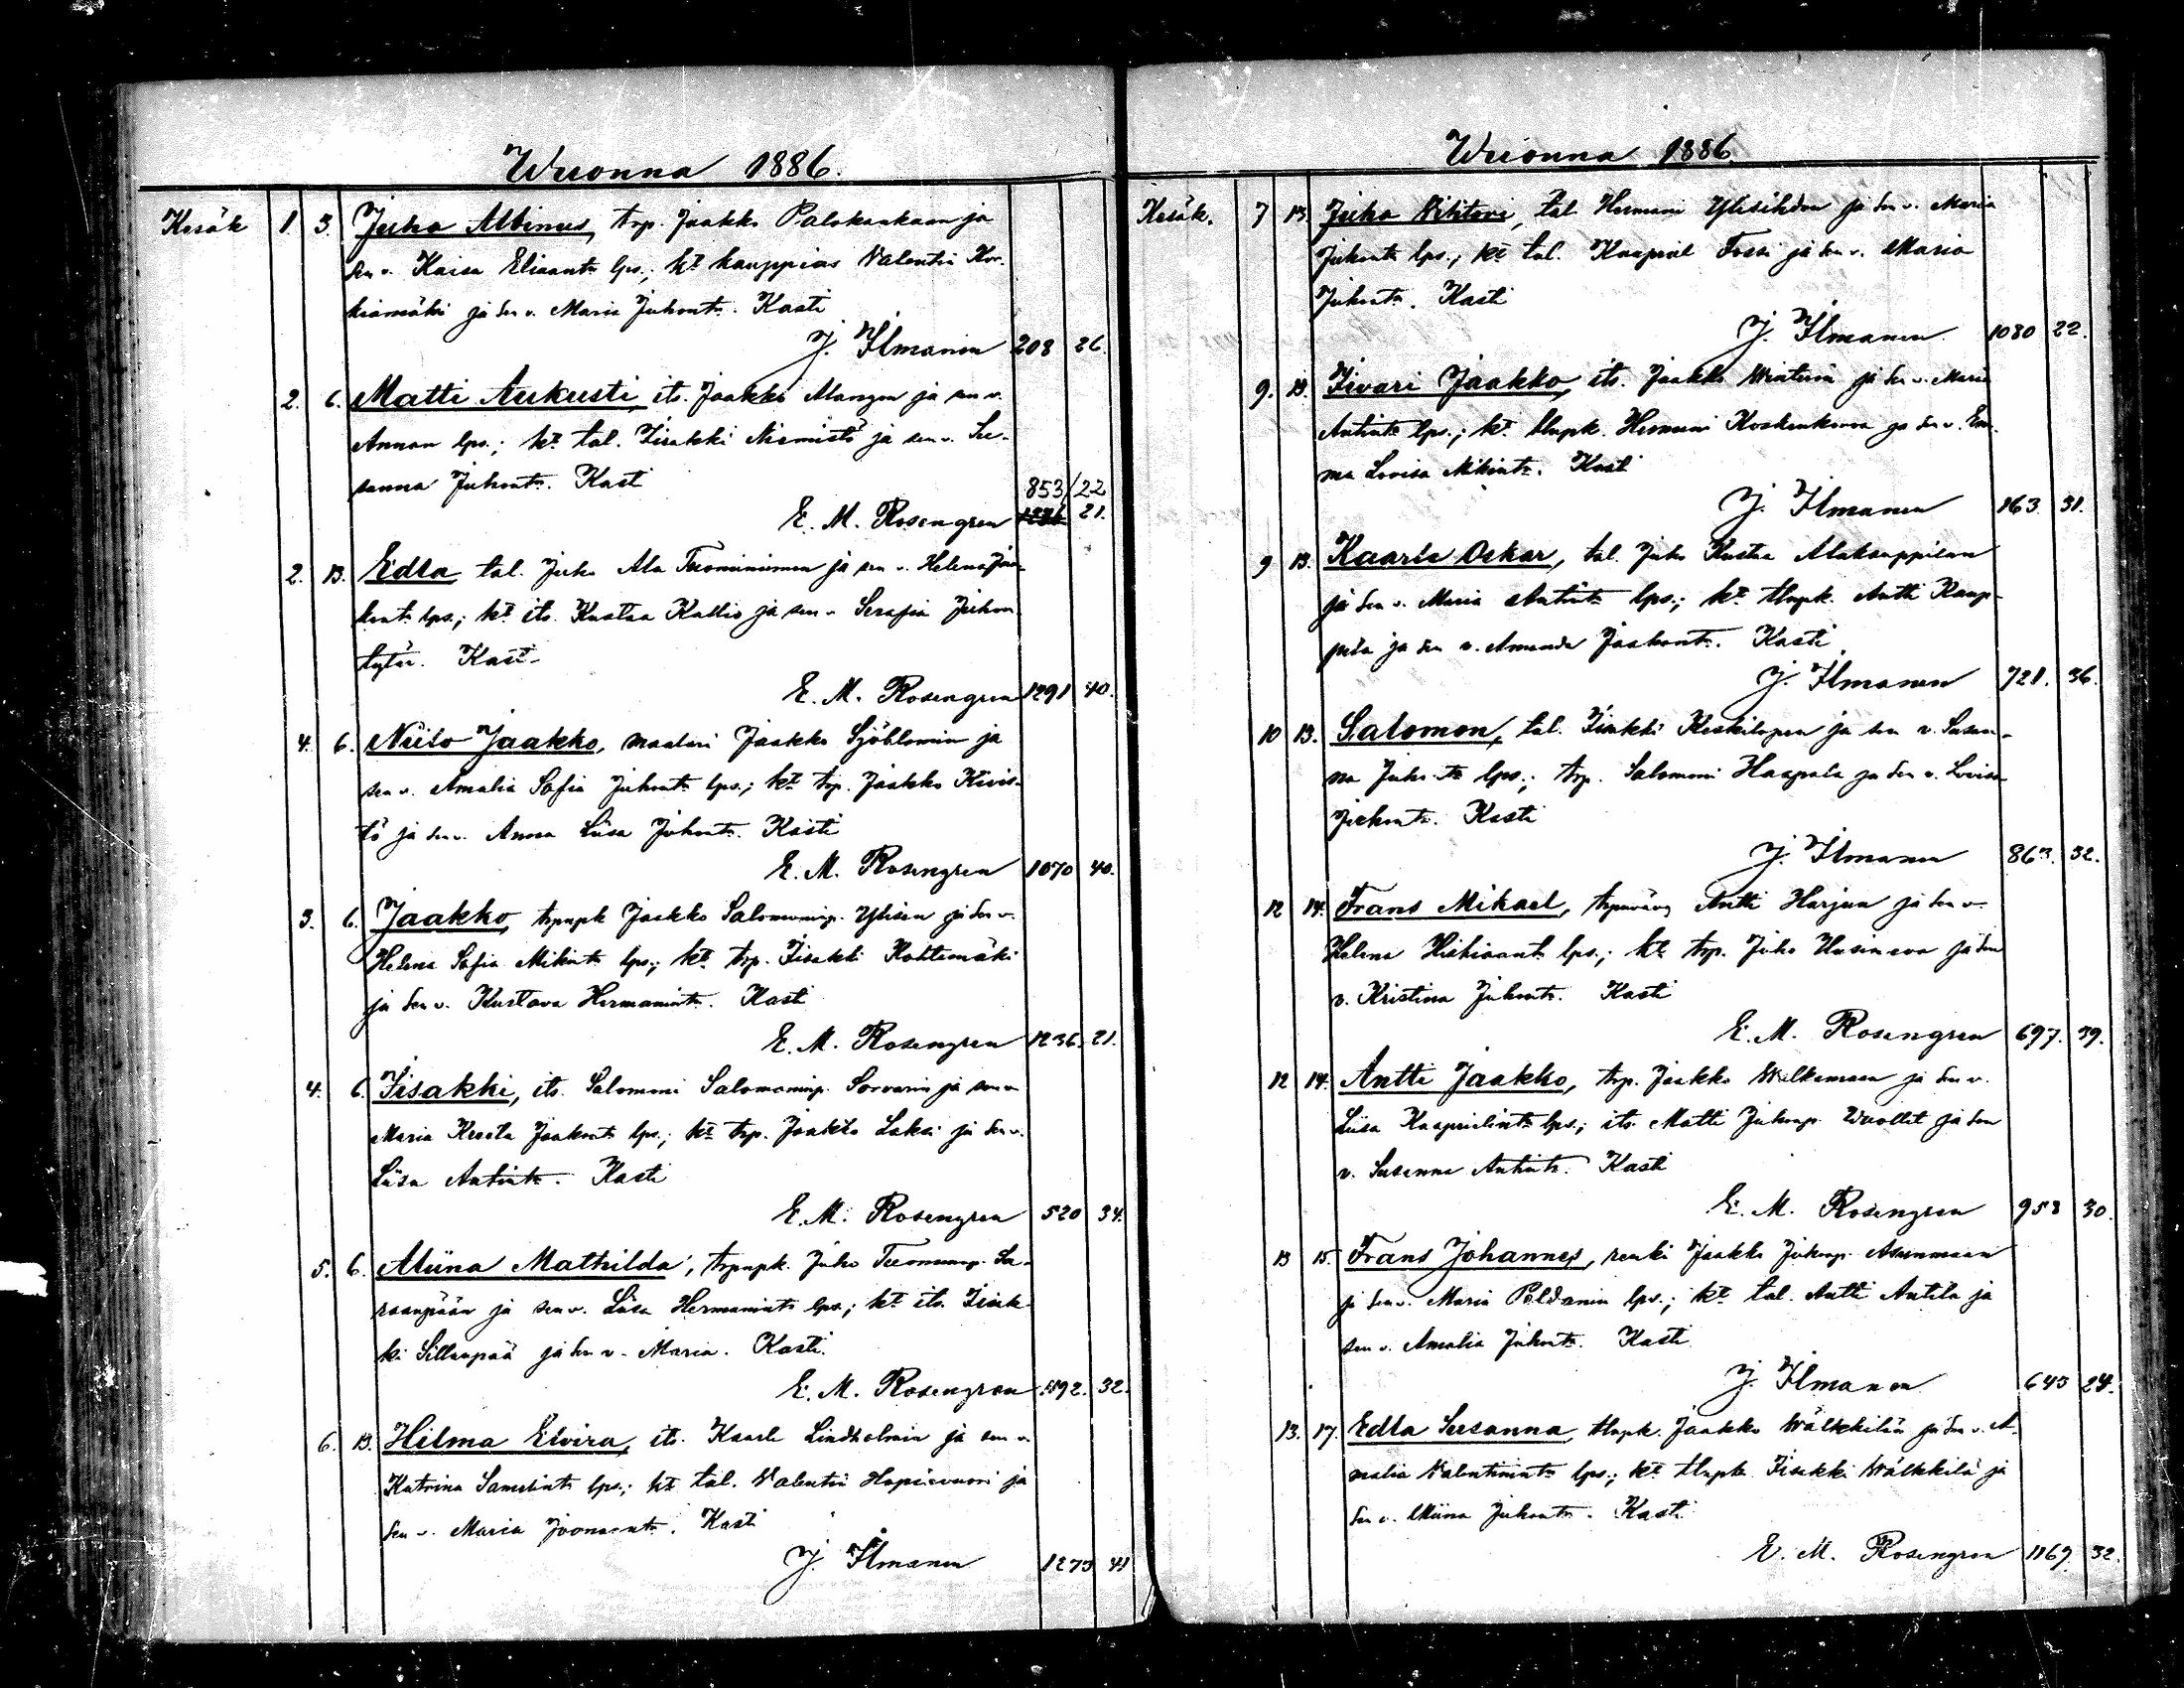 Wuonna 1886.
Kesäk 1. 3. Juho Albinus, trp. Jaakko Palokankaan ja
sen v. Kaisa Eliaantr lps.; kt kauppias Valentin Kor-
kiamäki ja sen v. Maria Juhontr. Kasti
J. Ilmanen 208 26.
2. 6. Matti Aukusti, its. Jaakko Mangen ja sen v.
Annan lps.; kt tal. Iisakki Niemistö ja sen v. Su-
sanna Juhontr. Kast
853/22
E. M. Rosengren 1236 21.
2. 13. Edla tal. Juho Ala Tuominiemen ja sen v. Helena Jaa-
kontr lps.; kt its. Kustaa Kallio ja sen v. Serafia Juhon
tytär. Kast-
E. M. Rosengren 1291 40.
4. 6. Niilo Jaakko, maalari Jaakko Sjöblomin ja
sen v. Amalia Sofia Juhontr lps.; kt trp. Jaakko Kivis-
tö ja sen v. Anna Liisa Juhontr. Kasti
E. M. Rosengren 1070 40.
3. 6. Jaakko, trpnpk Jaakko Salomoninp. Ylisen ja sen v.
Helena Sofia Mikintr lps.; kt trp. Iisakki Kohtamäki
ja sen v. Kustava Hermanintr. Kasti
E. M. Rosengren 1236. 21.
4. 6. Iisakki, its. Salomoni Salomoninp. Sorvarin ja sen v.
Maria Kreeta Jaakontr lps.; kt trp. Jaakko Laksi ja sen v.
Liisa Antintr. Kasti
E. M. Rosengren 520 34.
5. 6. Miina Mathilda, trpnpk. Juho Tuomaanp. Sa-
raanpään ja sen v. Liisa Hermanintr lps.; kt its. Iisak-
ki Sillanpää ja sen v. Maria. Kasti.
E. M. Rosengren 592. 32.
6. 13. Hilma Elvira, its. Kaarle Lindholmin ja sen v.
Katrina Samelintr lps.; kt tal. Valentin Hapiavuori ja
sen v. Maria Joonaantr. Kasti
J. Ilmanen 1273 41
Wuonna 1886
Kesäk. 7 13. Juho tal. Hermani ja sen v. Maria
Juhontr lps.; kt tal. Kaapriel Fossi ja sen v. Maria
Juhontr. Kasti
J. Ilmanen 1080 22.
9. 13. Iivari Jaakko, its. Jaakko ja sen v. Maria
Antintr lps.; kt tlnpk. Hermanni Koskenkorva ja sen v. Em-
ma Lovisa Mikintr. Kasti
J. Ilmanen 163. 31.
9 13. Kaarle Oskar, tal. Juho Kustaa Alakauppilan
ja sen v. Maria Antintr lps.; kt tlnpk. Antti Kaup-
pila ja sen v. Amanda Jaakontr. Kasti
J. Ilmanen 721. 36.
10 13. Salomon, tal. Iisakki Keskilopen ja sen v. Susan-
na Juhontr lps.; trp. Salomoni Haapala ja sen v. Lovisa
Juhontr. Kasti
J. Ilmanen 863. 32.
12 14. Frans Mikael, Antti Harjun ja sen v.
Helena Hiskiaantr lps.; kt trp. Juho ja sen
v. Kristina Juhontr. Kasti
E. M. Rosengren 697. 39.
12 14. Antti Jaakko, trp. Jaakko Walkaman ja sen v.
Liisa Kaaprielintr lps.; its. Matti Juhonp. Wuollet ja sen
v. Susanna Antintr. Kasti
E. M. Rosengren 958 30.
13 15. Frans Johannes, renki Jaakko Juhonp. Asunmaan
ja sen v. Maria Poldanin lps.; kt tal. Antti Antila ja
sen v. Amalia Juhontr. Kasti
J. Ilmanen 645 24.
13. 17. Edla Susanna, tlnpk. Jaakko Wälkkilän ja sen v. A-
malia Valentinintr lps.; kt tlnpk Iisakki Wälkkilä ja
sen v. Miina Juhontr. Kasti
E. M. Rosengren 1167. 32.